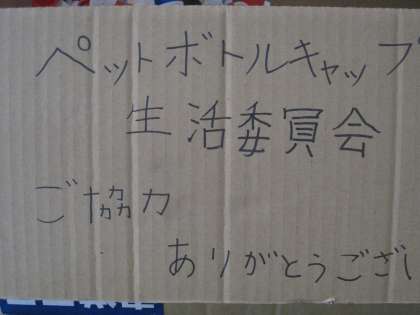 ペットボトルキャップ
生活委員会
ご協力
ありがとうござい